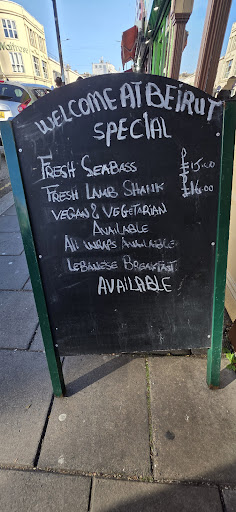 Waitrose
WELCOME AT BEIRUT
SPECIAL
FRESH SEABASS £15.00
FRESH LAMB SHANK £16.00
VEGAN & VEGETARIAN
AVAILABLE
All WRAPS AVAILABLE
LEBANESE BREAKFAST
AVAILABLE